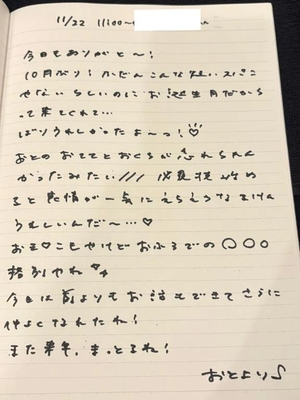 11/22 11:00〜
今日もありがと〜!
10月ぶり!ふだんこんな短いスパン
やないらしいのにお誕生月だから
って来てくれて…
ばりうれしかったよーっ!♡
おとのおててとおくちが忘れられん
かったみたい///
ると表情が一気に
うれしいんだ〜…♡
おま♡こもやけどおふろでの〇〇〇
格別やね♡
今日は前よりもお話もできてさらに
仲よくなれたね!
また来年、まっとるね!
おとより♪